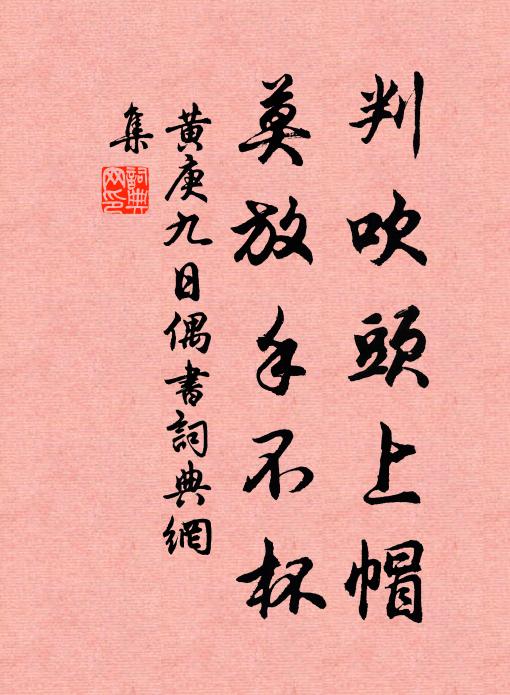 判吹頭上帽
莫放手不杯
黃庚九日偶書詞典網
集
詞典網印